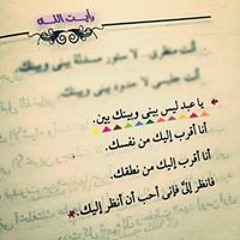 رأيت الله
أنت منظري. لا ستور مسدلة بيني وبينك
أنت جليسي لا حدود بيني وبينك
يا عبد ليس بيني وبينك بين.
أنا أقرب إليك من نفسك.
أنا أقرب إليك من نطقك.
فانظر إليَّ فإنى أحب أن أنظر إليك.